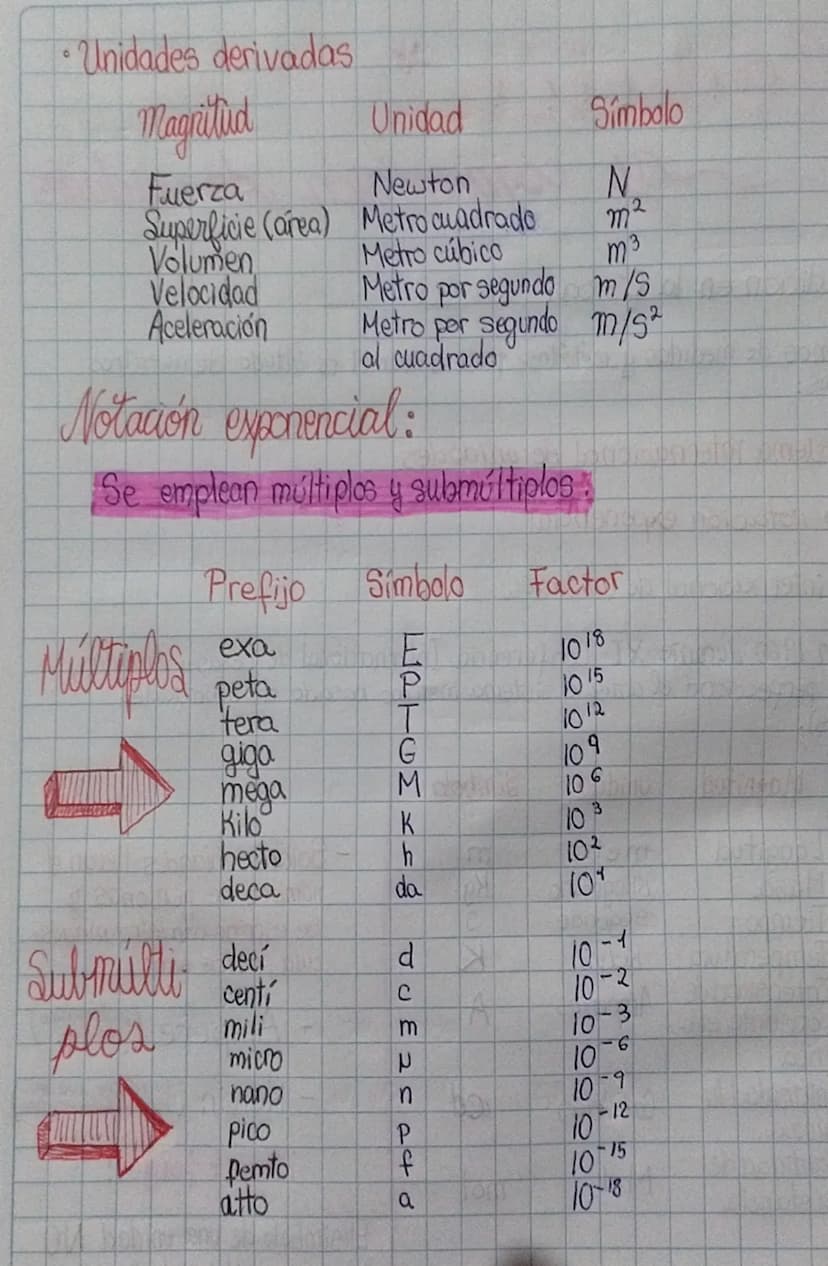 · Unidades derivadas
Magnitud Unidad Símbolo
Fuerza Newton N
Superficie (área) Metro cuadrado m²
Volumen Metro cúbico m³
Velocidad Metro por segundo m/s
Aceleración Metro por segundo m/s²
al cuadrado
Notación exponencial:
Se emplean múltiplos y submúltiplos:
Prefijo Símbolo Factor
Múltiplos
exa E 10¹⁸
peta P 10¹⁵
tera T 10¹²
giga G 10⁹
mega M 10⁶
Kilo K 10³
hecto h 10²
deca da 10¹
Submúlti
plos
decí d 10⁻¹
centí c 10⁻²
mili m 10⁻³
micro μ 10⁻⁶
nano n 10⁻⁹
pico p 10⁻¹²
femto f 10⁻¹⁵
atto a 10⁻¹⁸